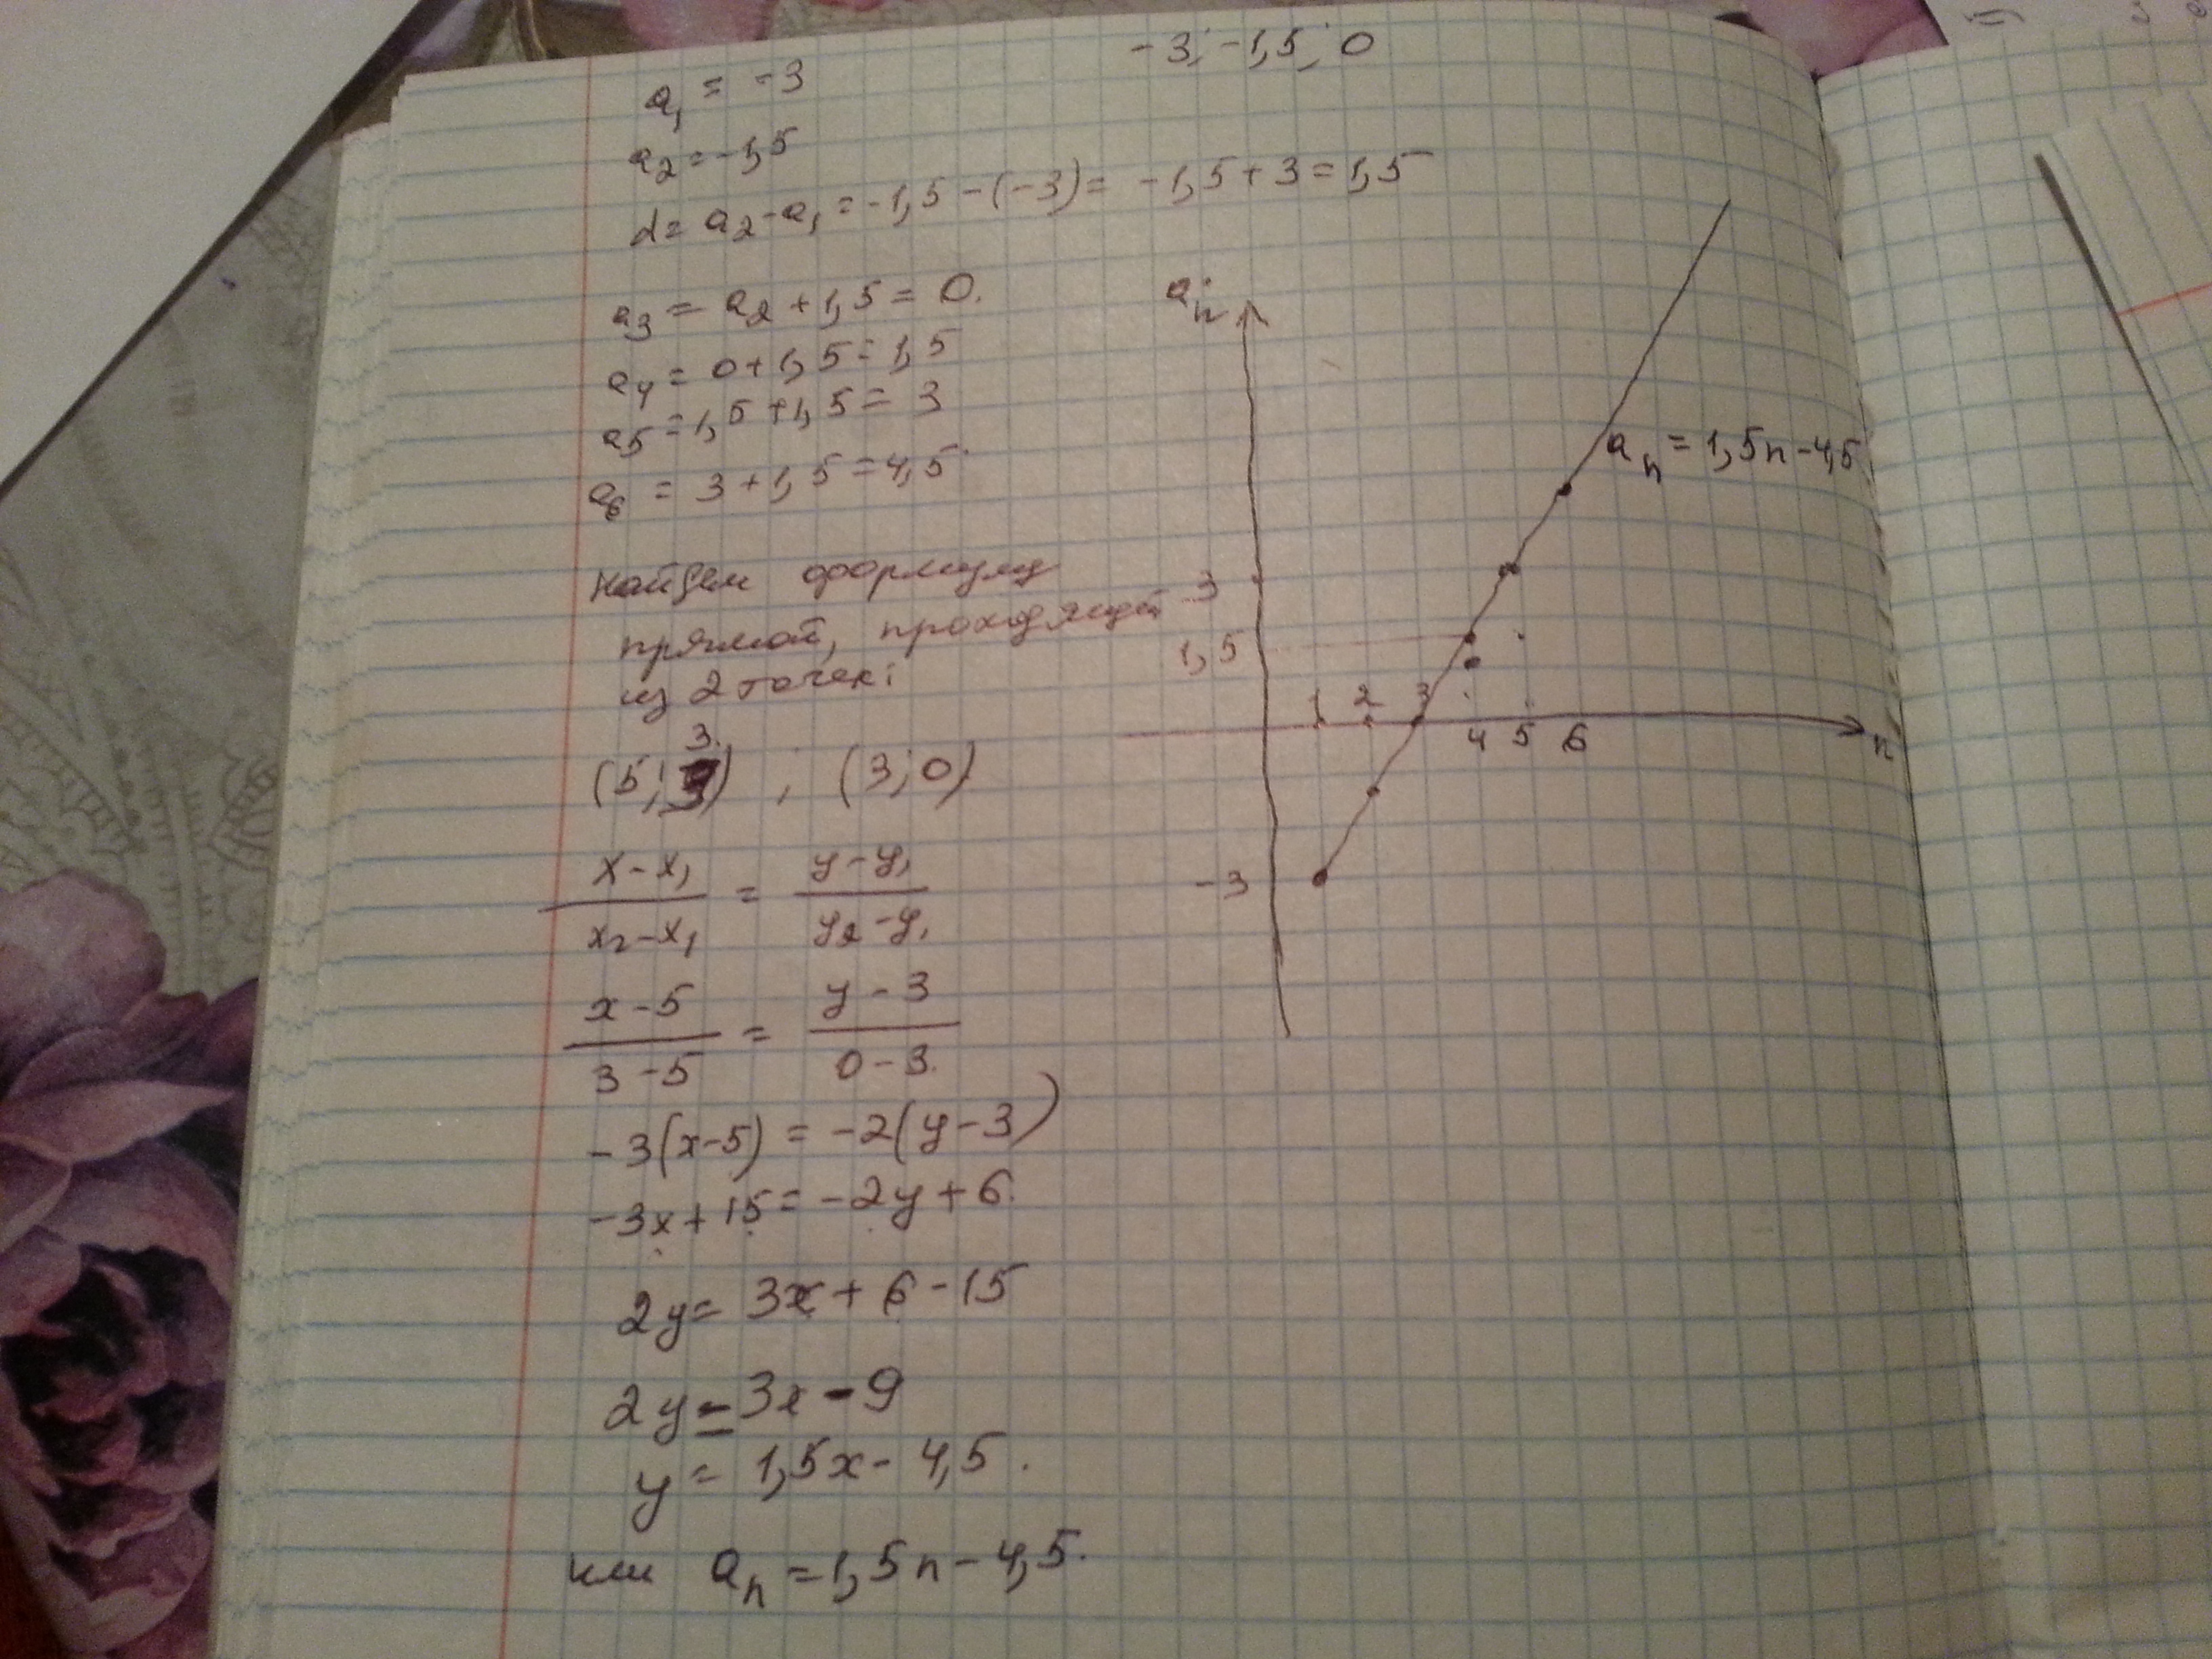 -3; -1,5; 0
a₁ = -3
a₂ = -1,5
d = a₂ - a₁ = -1,5 - (-3) = -1,5 + 3 = 1,5
a₃ = a₂ + 1,5 = 0.
a₄ = 0 + 1,5 = 1,5
a₅ = 1,5 + 1,5 = 3
a₆ = 3 + 1,5 = 4,5
найдем формулу
прямой, проходящей
из 2 точек:
(5; 3) ; (3; 0)
(x - x₁)/(x₂ - x₁) = (y - y₁)/(y₂ - y₁)
(x - 5)/(3 - 5) = (y - 3)/(0 - 3)
-3(x - 5) = -2(y - 3)
-3x + 15 = -2y + 6
2y = 3x + 6 - 15
2y = 3x - 9
y = 1,5x - 4,5.
или aₙ = 1,5n - 4,5.
aₙ
aₙ = 1,5n - 4,5
3
1,5
1 2 3
4 5 6
n
-3